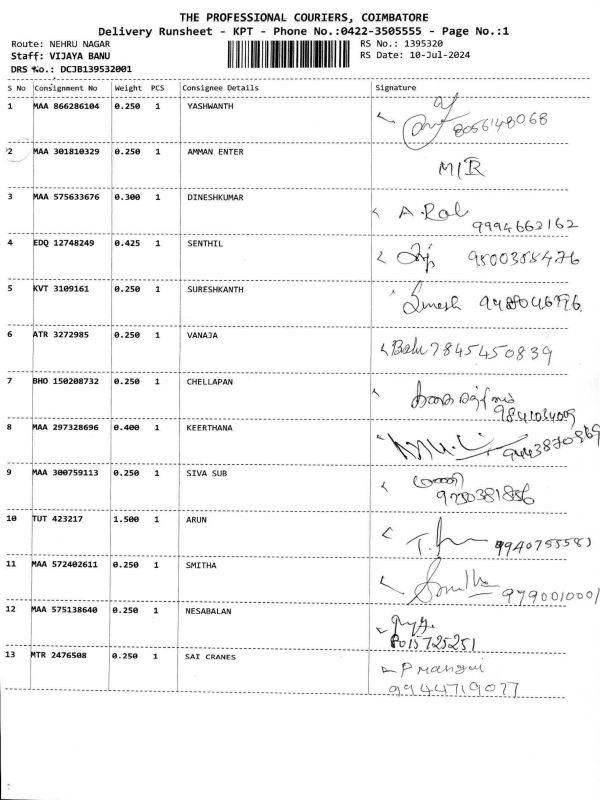 THE PROFESSIONAL COURIERS, COIMBATORE
Delivery Runsheet - KPT - Phone No.:0422-3505555 - Page No.:1
Route: NEHRU NAGAR RS No.: 1395320
Staff: VIJAYA BANU RS Date: 10-Jul-2024
DRS No.: DCJB139532001
S No Consignment No Weight PCS Consignee Details Signature
1 MAA 866286104 0.250 1 YASHWANTH
8056148068
2 MAA 301810329 0.250 1 AMMAN ENTER
M/R
3 MAA 575633676 0.300 1 DINESHKUMAR
A.Ral
9994662162
4 EDQ 12748249 0.425 1 SENTHIL
9500358476
5 KVT 3109161 0.250 1 SURESHKANTH
6 ATR 3272985 0.250 1 VANAJA
Balu 7845450839
7 BHO 150208732 0.250 1 CHELLAPAN
8 MAA 297328696 0.400 1 KEERTHANA
9443870869
9 MAA 300759113 0.250 1 SIVA SUB
மணி
9750381856
10 TUT 423217 1.500 1 ARUN
9940755583
11 MAA 572402611 0.250 1 SMITHA
Smitha 9790010001
12 MAA 575138640 0.250 1 NESABALAN
8015725251
13 MTR 2476508 0.250 1 SAI CRANES
P Mangai
9944719077